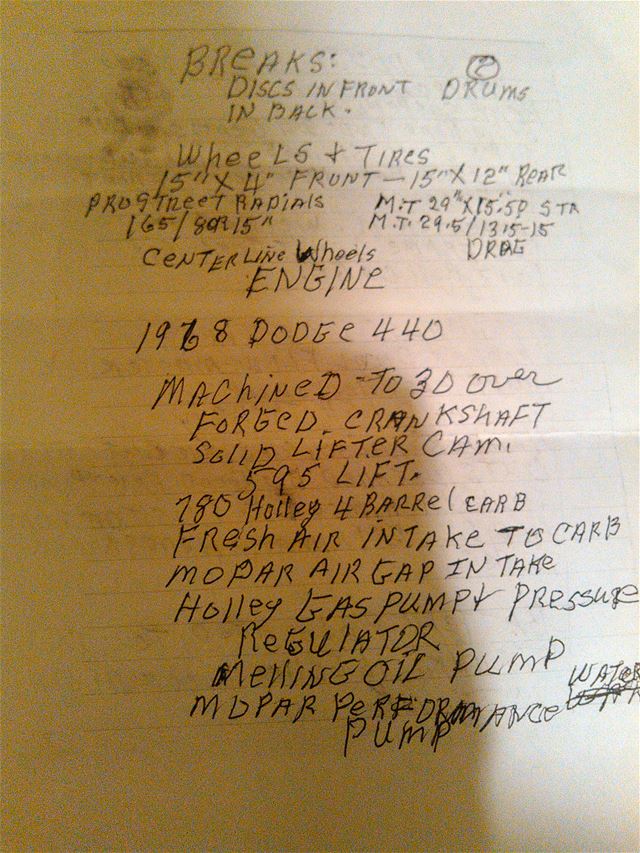 BREAKS: 2
DISCS IN FRONT DRUMS
IN BACK.
WheeLS + TIRES
15" X 4" FRONT - 15" X 12" REAR
PROSTREET RADIALS M.T 29" X 15.50 STR
165/80R15" M.T. 29.5/13.5-15
CENTERLINE Wheels DRAG
ENGINE
1968 DODGE 440
MACHINED TO 30 over
FORGED CRANKSHAFT
Solid LIFTER CAM.
595 LIFT.
780 Holley 4 BARREL CARB
FRESH AIR INTAKE TO CARB
MOPAR AIR GAP INTAKE
Holley GAS PUMP + PRESSURE
REGULATOR
MELLING OIL PUMP
MOPAR PERFORMANCE WATER
PUMP